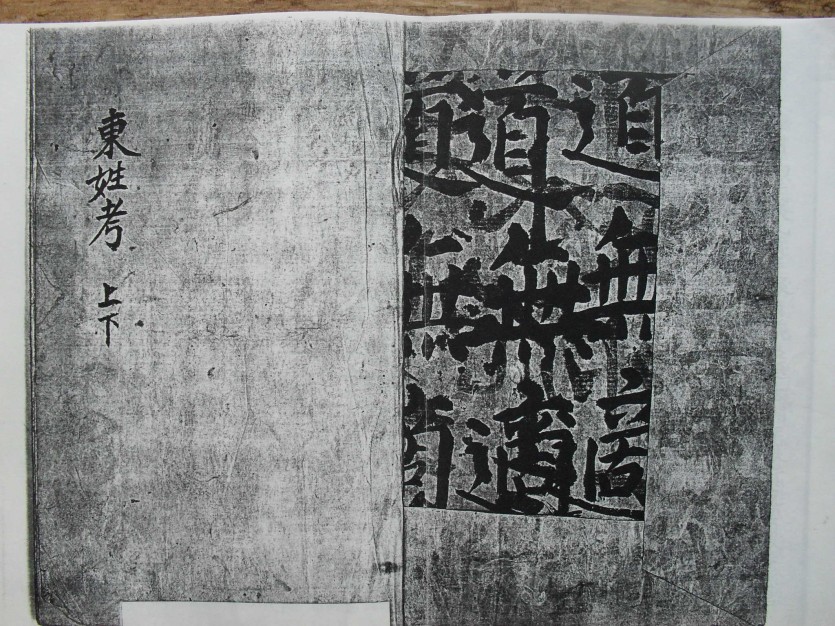 道無適
道無適
道無適
東姓考 上下